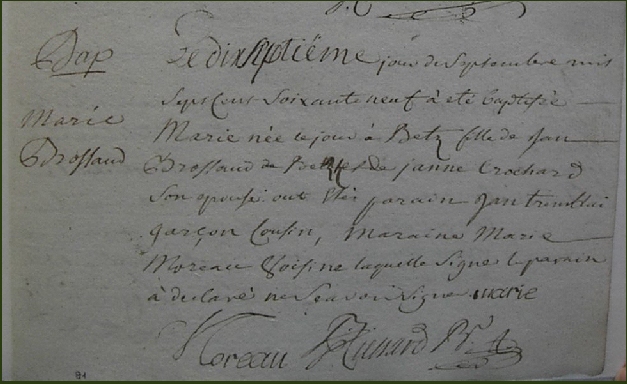 Bap
Marie
Brossaud
Le dix septiéme jour de Septembre mil
Sept Cent Soixante neuf à eté baptisée
Marie née le jour à Betz fille de Jan
Brossaud de et de janne Crochard
Son epouse ont étés parain Jan tremblai
garçon Cousin, maraine Marie
Moreau Voisine laquelle Signe le parain
à declaré ne Scavoir Signé marie
Moreau